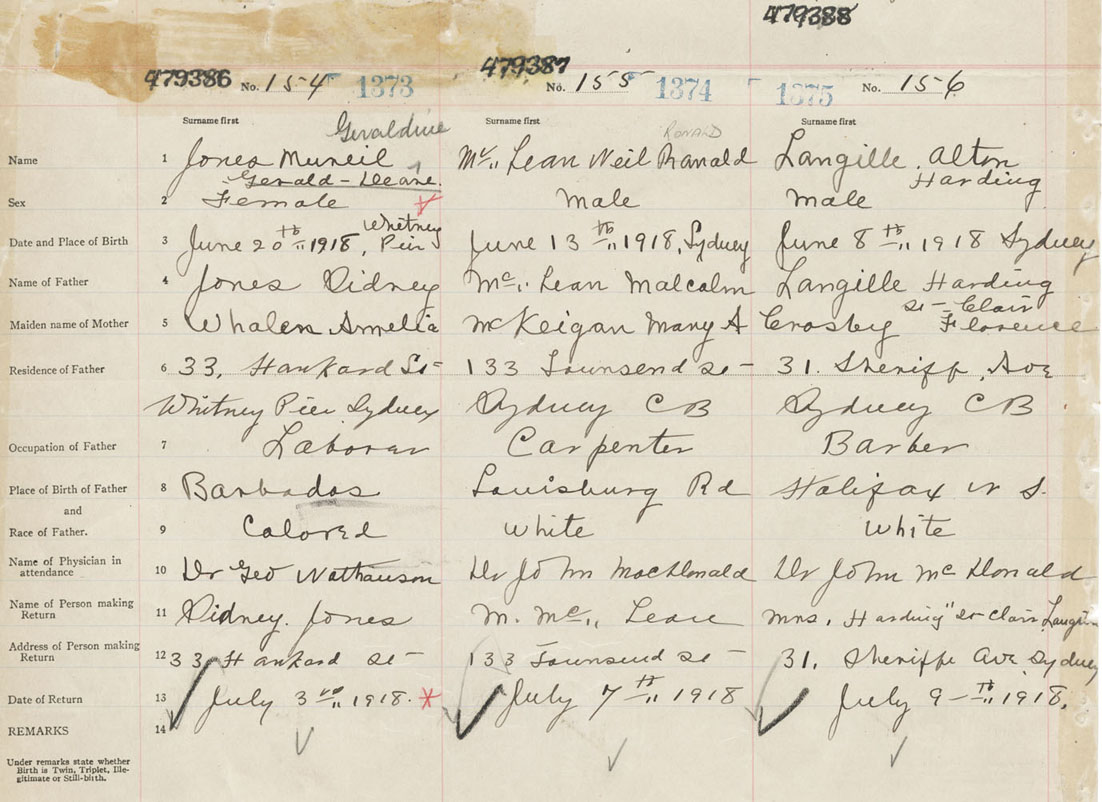 479388
479386 No. 154 1373 479387 No. 155 1374 1375 No. 156
Surname first Surname first Surname first
Geraldine RONALD
Name 1 Jones Muneil Mc Lean Neil Ranald Langille, Alton
Gerald-Deane. Harding
Sex 2 Female Male Male
Whitney
Date and Place of Birth 3 June 20th 1918, Pier June 13th 1918, Sydney June 8th 1918 Sydney
Name of Father 4 Jones Sidney Mc Lean Malcolm Langille Harding
St-Clair
Maiden name of Mother 5 Whalen Amelia McKeigan Mary A Crosby Florence
Residence of Father 6 33, Hankard St- 133 Townsend St- 31. Sheriff, Ave
Whitney Pier Sydney Sydney CB Sydney CB.
Occupation of Father 7 Laborer Carpenter Barber
Place of Birth of Father 8 Barbados Louisburg Rd Halifax N S.
and
Race of Father. 9 Colored White White
Name of Physician in
attendance 10 Dr Geo Nathanson Dr John MacDonald Dr John McDonald
Name of Person making
Return 11 Sidney. Jones M. Mc Lean Mrs. Harding "St Clair
Address of Person making
Return 12 33 Hankard St- 133 Townsend St- 31, Sheriffe Ave Sydney
Date of Return 13 July 3rd 1918. * July 7th 1918 July 9-th 1918.
REMARKS 14
Under remarks state whether
Birth is Twin, Triplet, Ille-
gitimate or Still-birth.